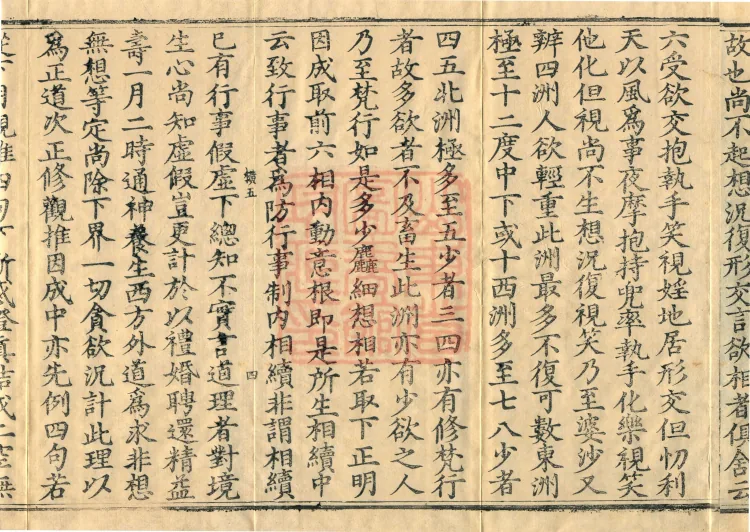 故也尚不起想況復形交言欲相者俱舍云
六受欲交抱執手笑視婬地居形交但忉利
天以風為事夜摩抱持兜率執手化樂視笑
他化但視尚不生想況復視笑乃至婆沙又
辨四洲人欲輕重此洲最多不復可數東洲
極至十二度中下或十西洲多至七八少者
四五北洲極多至五少者三四亦有修梵行
者故多欲者不及畜生此洲亦有少欲之人
乃至梵行如是多少麤細想相若取下正明
因成取前六相內動意根即是所生相續中
云致行事者為防行事制內相續非謂相續
嫰五 四
已有行事假虛下總知不實言道理者對境
生心尚知虛假豈更計於以禮婚聘還精益
壽一月二時通神養生西方外道為求非想
無想等定尚除下界一切貪欲況計此理以
為正道次正修觀推因成中亦先例四句若